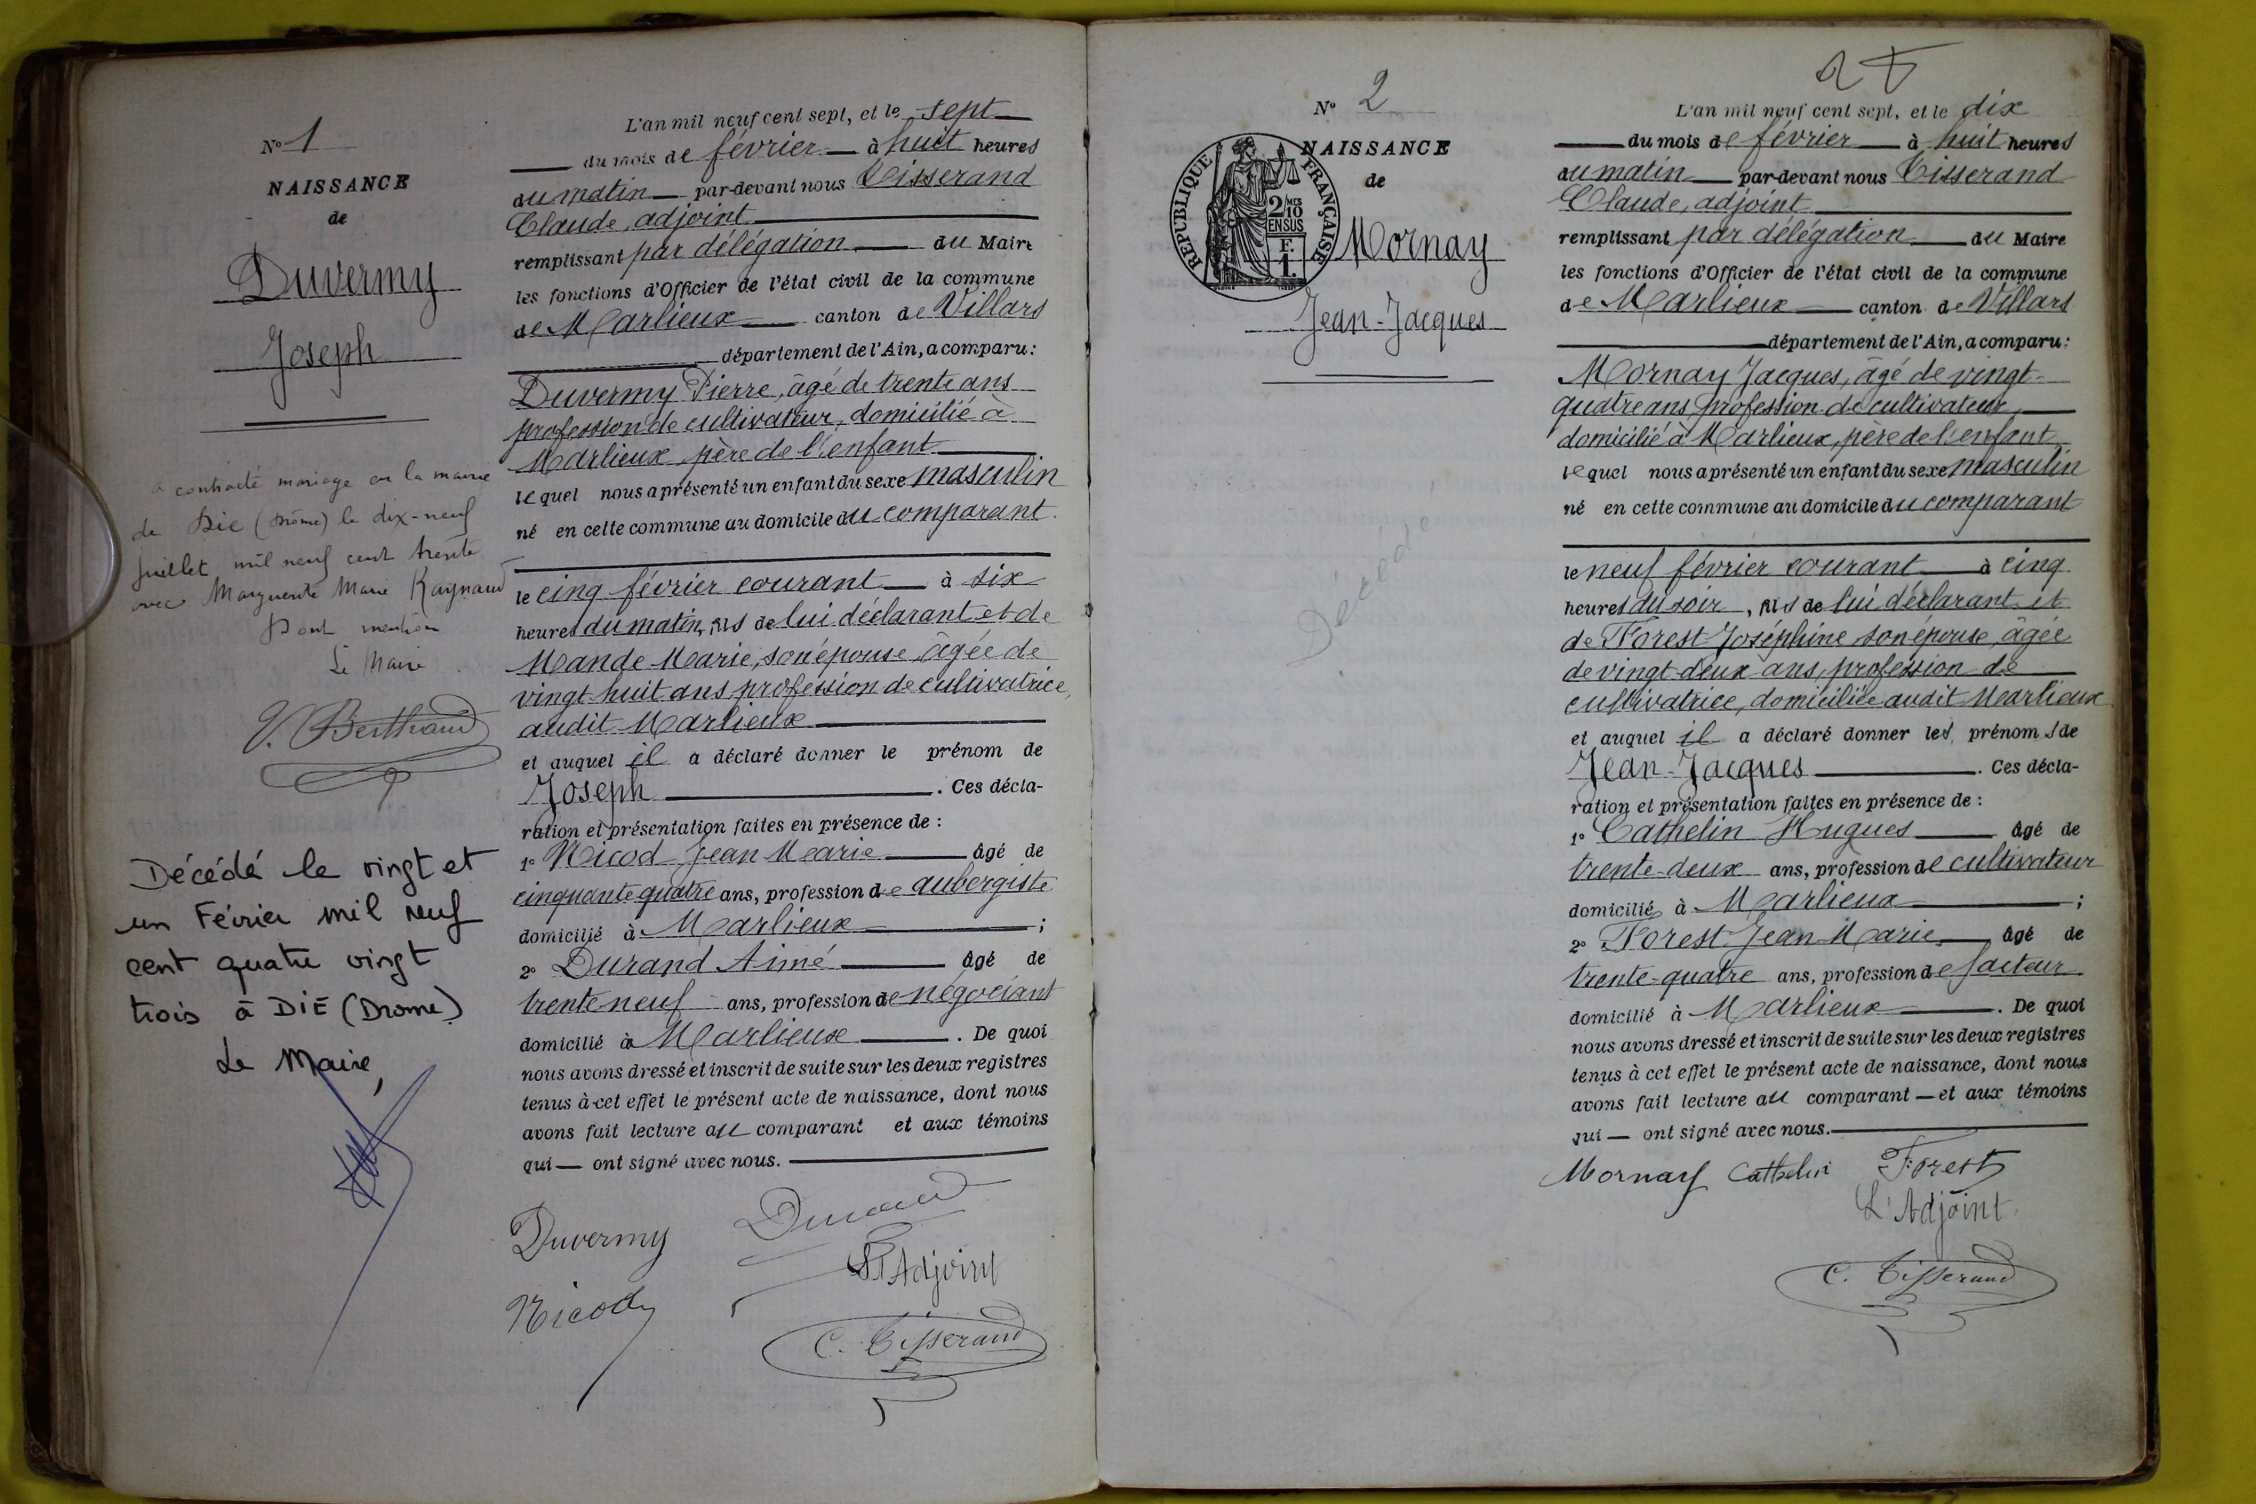 N° 1
NAISSANCE
de
Duvermy
Joseph
a contracté mariage en la mairie
de Die (Drôme) le dix-neuf
juillet mil neuf cent trente
avec Marguerite Marie Raynaud
Dont mention
Le Maire
V. Berthaud
Décédé le vingt et
un Février mil neuf
cent quatre vingt
trois à DIE (Drome)
Le Maire,
L'an mil neuf cent sept, et le sept
du mois de février à huit heures
du matin par-devant nous Tisserand
Claude, adjoint
remplissant par délégation du Maire
les fonctions d'Officier de l'état civil de la commune
de Marlieux canton de Villars
département de l'Ain, a comparu:
Duvermy Pierre, âgé de trente ans
profession de cultivateur, domicilié à
Marlieux, père de l'enfant
lequel nous a présenté un enfant du sexe masculin
né en cette commune au domicile du comparant.
le cinq février courant à six
heures du matin, fils de lui déclarant et de
Mande Marie, son épouse, âgée de
vingt huit ans profession de cultivatrice,
audit Marlieux
et auquel il a déclaré donner le prénom de
Joseph . Ces décla-
ration et présentation faites en présence de :
1° Nicod Jean Marie âgé de
cinquante quatre ans, profession de aubergiste
domicilié à Marlieux ;
2° Durand Aimé âgé de
trente neuf ans, profession de négociant
domicilié à Marlieux . De quoi
nous avons dressé et inscrit de suite sur les deux registres
tenus à cet effet le présent acte de naissance, dont nous
avons fait lecture au comparant et aux témoins
qui — ont signé avec nous.
Duvermy Durand
L'Adjoint
Nicod
C. Tisserand
N° 2
NAISSANCE
de
RÉPUBLIQUE FRANÇAISE
2/10 MES
EN SUS
F.
1.
Mornay
Jean-Jacques
Décédé
L'an mil neuf cent sept, et le dix
du mois de février à huit heures
du matin par-devant nous Tisserand
Claude, adjoint
remplissant par délégation du Maire
les fonctions d'Officier de l'état civil de la commune
de Marlieux canton de Villars
département de l'Ain, a comparu:
Mornay Jacques, âgé de vingt-
quatre ans, profession de cultivateur,
domicilié à Marlieux, père de l'enfant
lequel nous a présenté un enfant du sexe masculin
né en cette commune au domicile du comparant
le neuf février courant à cinq
heures du soir, fils de lui déclarant et
de Forest Joséphine son épouse, âgée
de vingt-deux ans, profession de
cultivatrice, domiciliée audit Marlieux
et auquel il a déclaré donner les prénoms de
Jean-Jacques . Ces décla-
ration et présentation faites en présence de :
1° Cathelin Hugues âgé de
trente-deux ans, profession de cultivateur
domicilié à Marlieux ;
2° Forest Jean Marie âgé de
trente-quatre ans, profession de facteur
domicilié à Marlieux . De quoi
nous avons dressé et inscrit de suite sur les deux registres
tenus à cet effet le présent acte de naissance, dont nous
avons fait lecture au comparant — et aux témoins
qui — ont signé avec nous.
Mornay Cathelin Forest
L'Adjoint
C. Tisserand